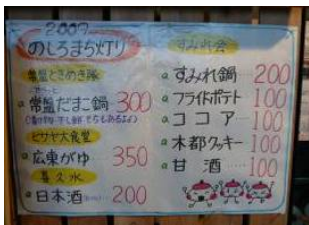 2007
のしろまち灯り
常盤ときめき隊
常盤だまこ鍋 300
ヒサヤ大食堂
広東がゆ 350
喜久水
日本酒 200
すみれ会
すみれ鍋 200
フライドポテト 100
ココア 100
木都クッキー 100
甘酒 100